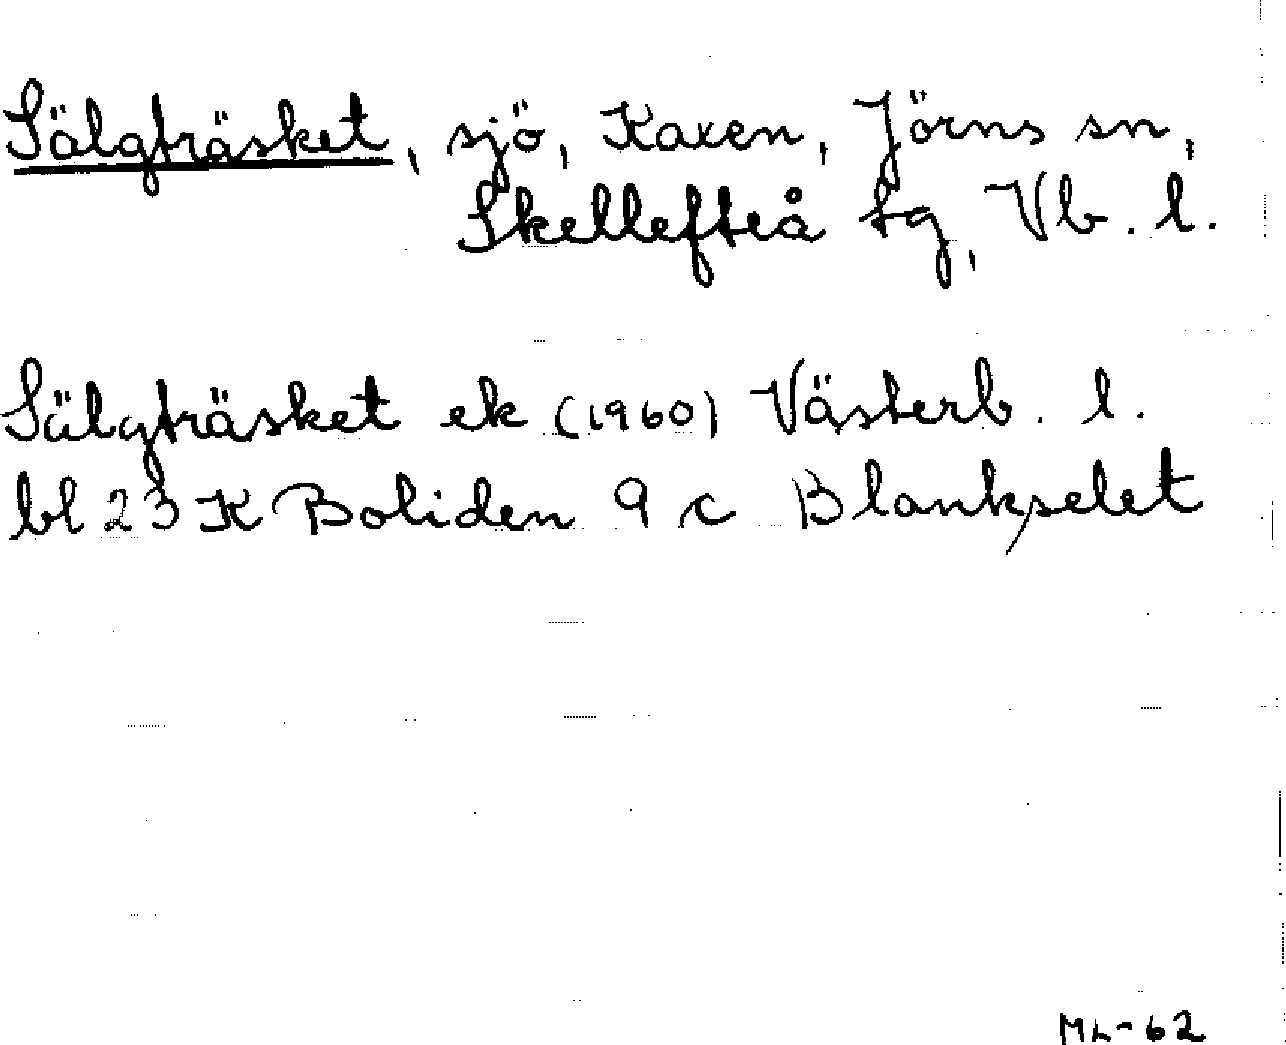 Sälgträsket, sjö, Kaxen, Jörns sn,
Skellefteå tg, Vb. l.
Sälgträsket ek (1960) Västerb. l.
bl 23 K Boliden 9 c Blankselet
ML-62